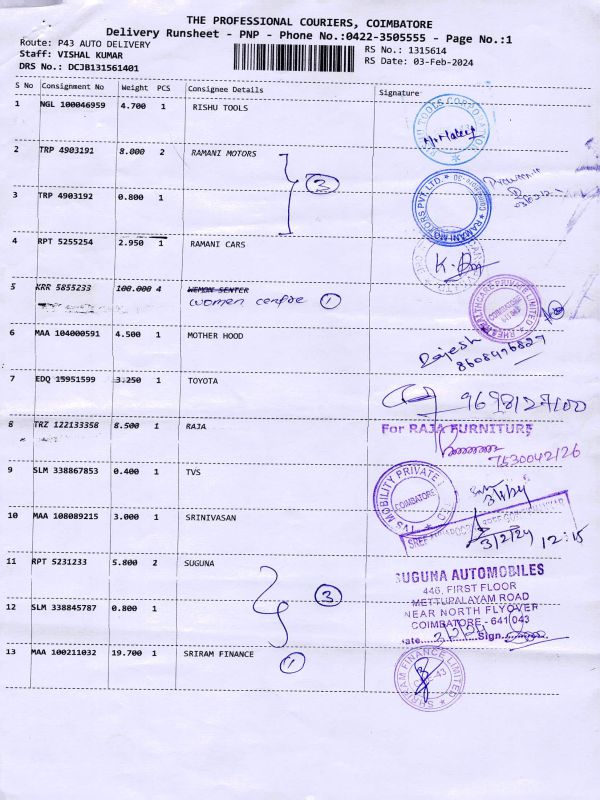 THE PROFESSIONAL COURIERS, COIMBATORE
Delivery Runsheet - PNP - Phone No.:0422-3505555 - Page No.:1
Route: P43 AUTO DELIVERY
RS No.: 1315614
Staff: VISHAL KUMAR
RS Date: 03-Feb-2024
DRS No.: DCJB131561401
S No Consignment No Weight PCS Consignee Details Signature
1 NGL 100046959 4.700 1 RISHU TOOLS
2 TRP 4903191 8.000 2 RAMANI MOTORS
3
RAMANI MOTORS PVT LTD.
3 TRP 4903192 0.800 1
4 RPT 5255254 2.950 1 RAMANI CARS
5 KRR 5855233 100.000 4 WEMON SENTER
women centre 1
COIMBATORE
6 MAA 104000591 4.500 1 MOTHER HOOD
Rajesh
8608476827
7 EDQ 15951599 3.250 1 TOYOTA
9698127100
8 TRZ 122133358 8.500 1 RAJA
For RAJA FURNITURE
7530042126
9 SLM 338867853 0.400 1 TVS
TVS MOBILITY PRIVATE
COIMBATORE
10 MAA 108089215 3.000 1 SRINIVASAN
3/2/24 12:15
11 RPT 5231233 5.800 2 SUGUNA
SUGUNA AUTOMOBILES
446, FIRST FLOOR
METTUPALAYAM ROAD
NEAR NORTH FLYOVER
COIMBATORE - 641 043
3
12 SLM 338845787 0.800 1
Sign.
13 MAA 100211032 19.700 1 SRIRAM FINANCE
1
SHRIRAM FINANCE LIMITED